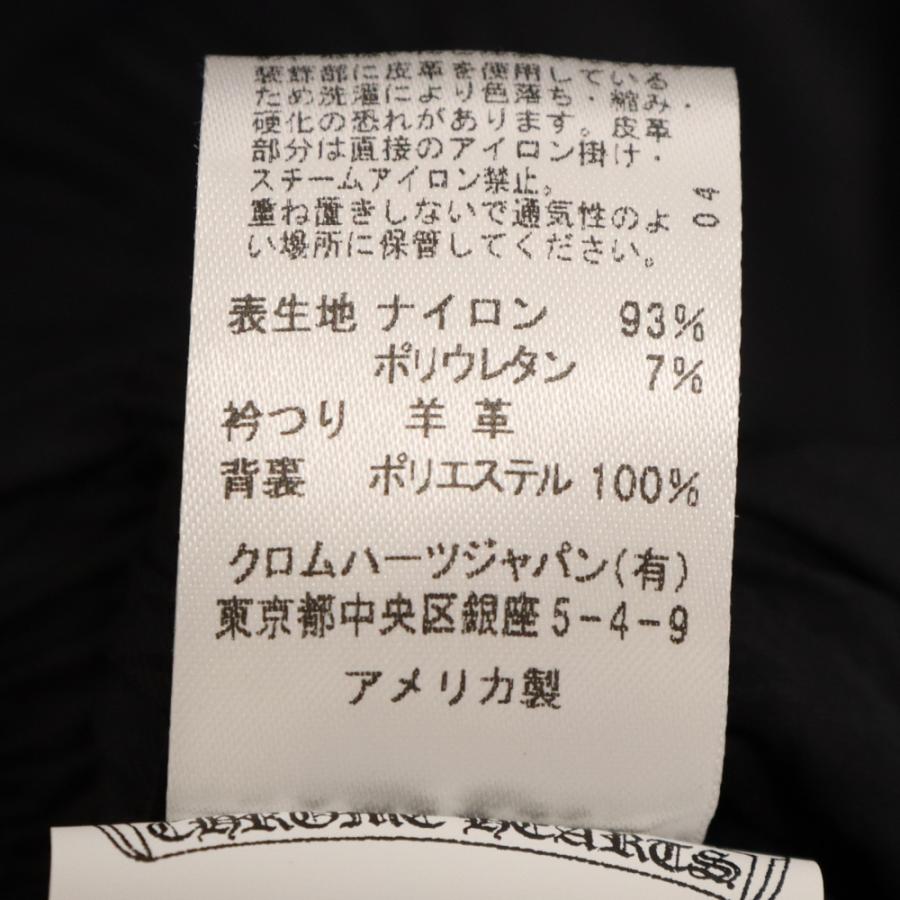 装飾部に皮革を使用している
ため洗濯により色落ち・縮み・
硬化の恐れがあります。皮革
部分は直接のアイロン掛け・
スチームアイロン禁止。
重ね置きしないで通気性のよ
い場所に保管してください。
04
表生地 ナイロン 93%
ポリウレタン 7%
衿つり 羊革
背裏 ポリエステル 100%
クロムハーツジャパン(有)
東京都中央区銀座5-4-9
アメリカ製
CHROME HEARTS